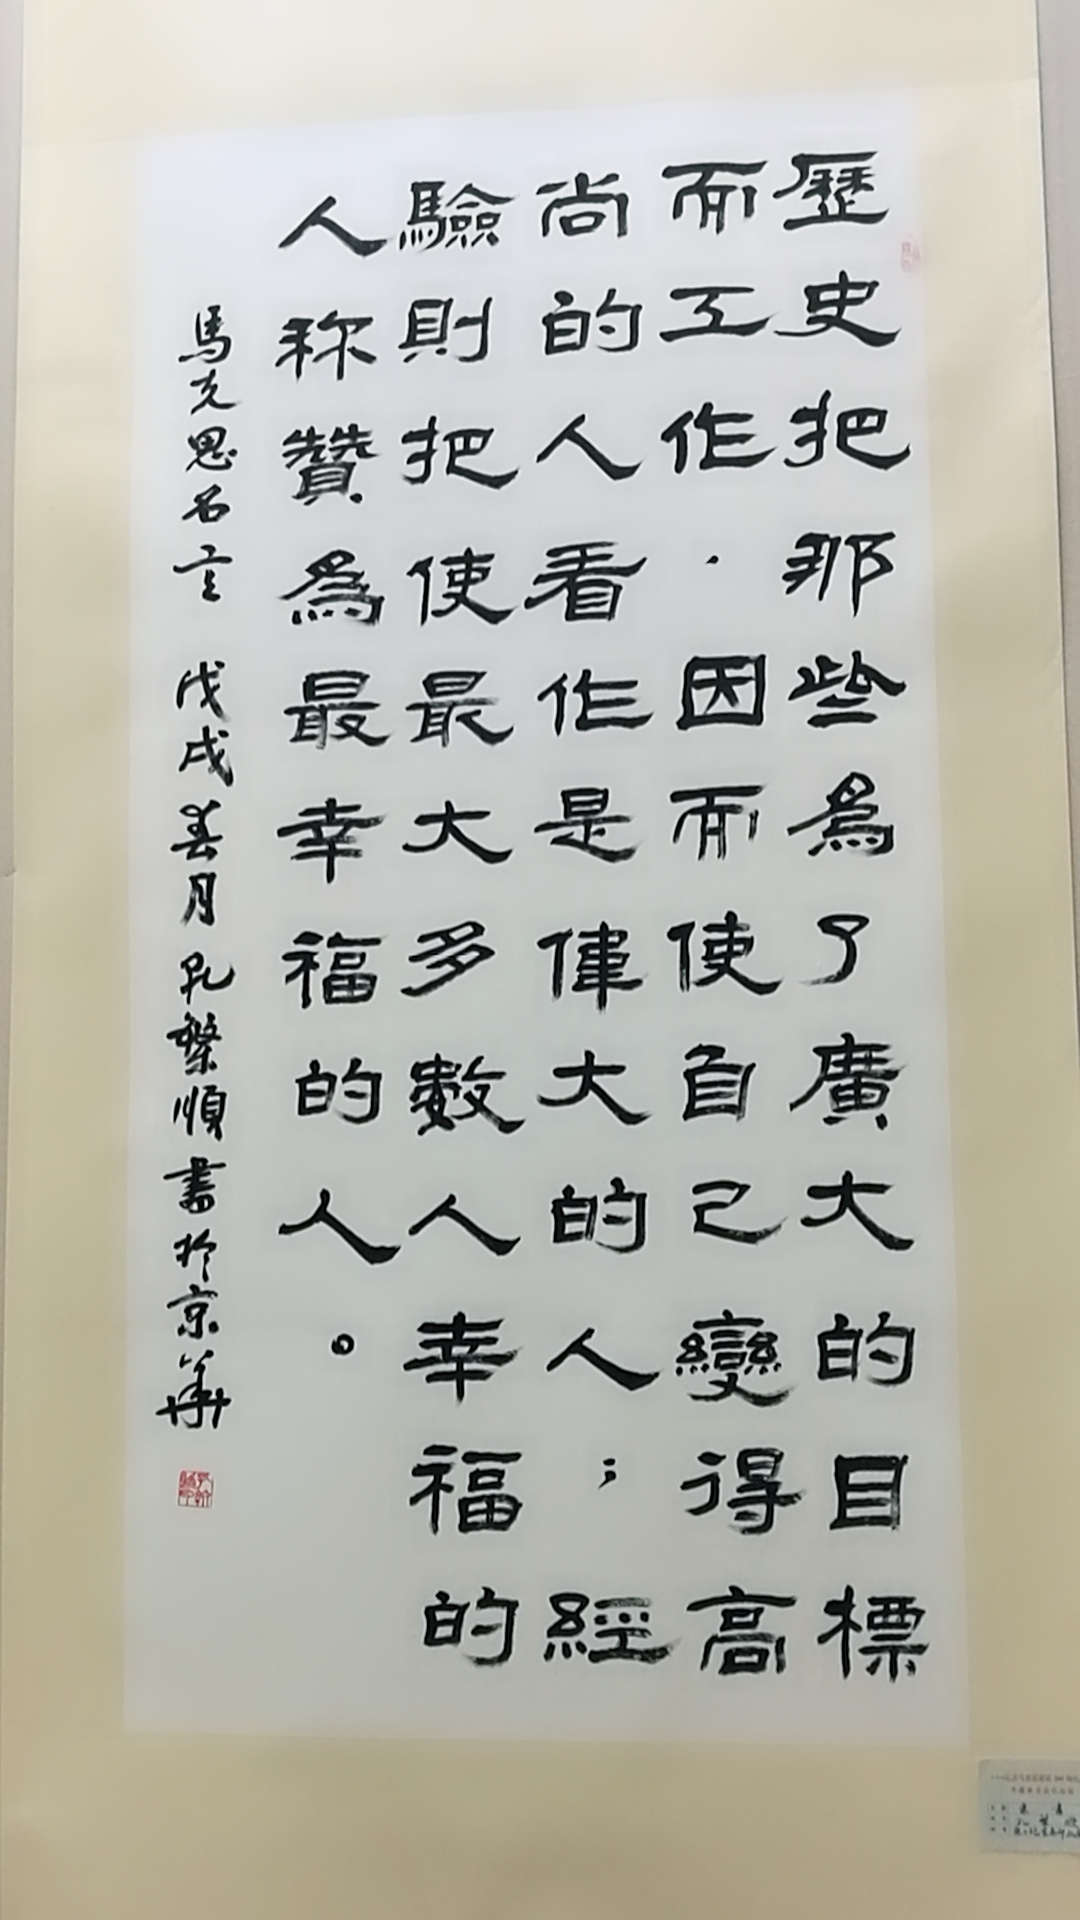 歷史把那些為了廣大的目標
而工作．因而使自己變得高
尚的人看作是偉大的人；經
驗則把使最大多數人幸福的
人称贊為最幸福的人。
馬克思名言 戊戌春月孔繁順書於京華